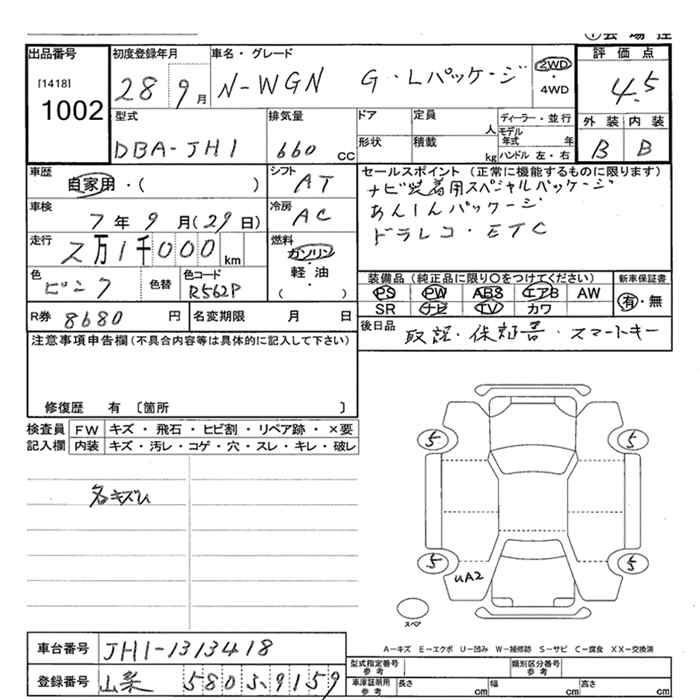 出品番号 初度登録年月 車名・グレード 評価点
[1418] 1002 28 9月 N-WGN G・Lパッケージ 2WD 4WD 4.5
型式 排気量 ドア 定員 人 ディーラー・並行 外装 内装
DBA-JH1 660 CC 形状 積載 kg モデル年式 年 ハンドル 左・右 B B
車歴 自家用・( ) シフト AT セールスポイント (正常に機能するものに限ります)
ナビ装着用スペシャルパッケージ
車検 7年9月(29日) 冷房 AC あんしんパッケージ
走行 2万1千000km 燃料 ガソリン・軽油・( ) ドラレコ・ETC
色 ピンク 色替 色コード R562P 装備品 (純正品に限り○をつけてください) 新車保証書
PS PW ABS エアB AW 有・無
SR ナビ TV カワ
R券 8680円 名変期限 月 日 後日品 取説・保証書・スマートキー
注意事項申告欄(不具合内容等は具体的に記入して下さい)
修復歴 有 〔箇所 〕
検査員記入欄 FW キズ・飛石・ヒビ割・リペア跡・×要
内装 キズ・汚レ・コゲ・穴・スレ・キレ・破レ
5 5
各キズU
5 5
UA2
スペア
A-キズ E-エクボ U-凹み W-補修跡 S-サビ C-腐食 XX-交換済
車台番号 JH1-1313418
型式指定番号 参考 類別区分番号 参考
登録番号 山梨 580 59159
車庫証明用 参考 長さ cm 幅 cm 高さ cm